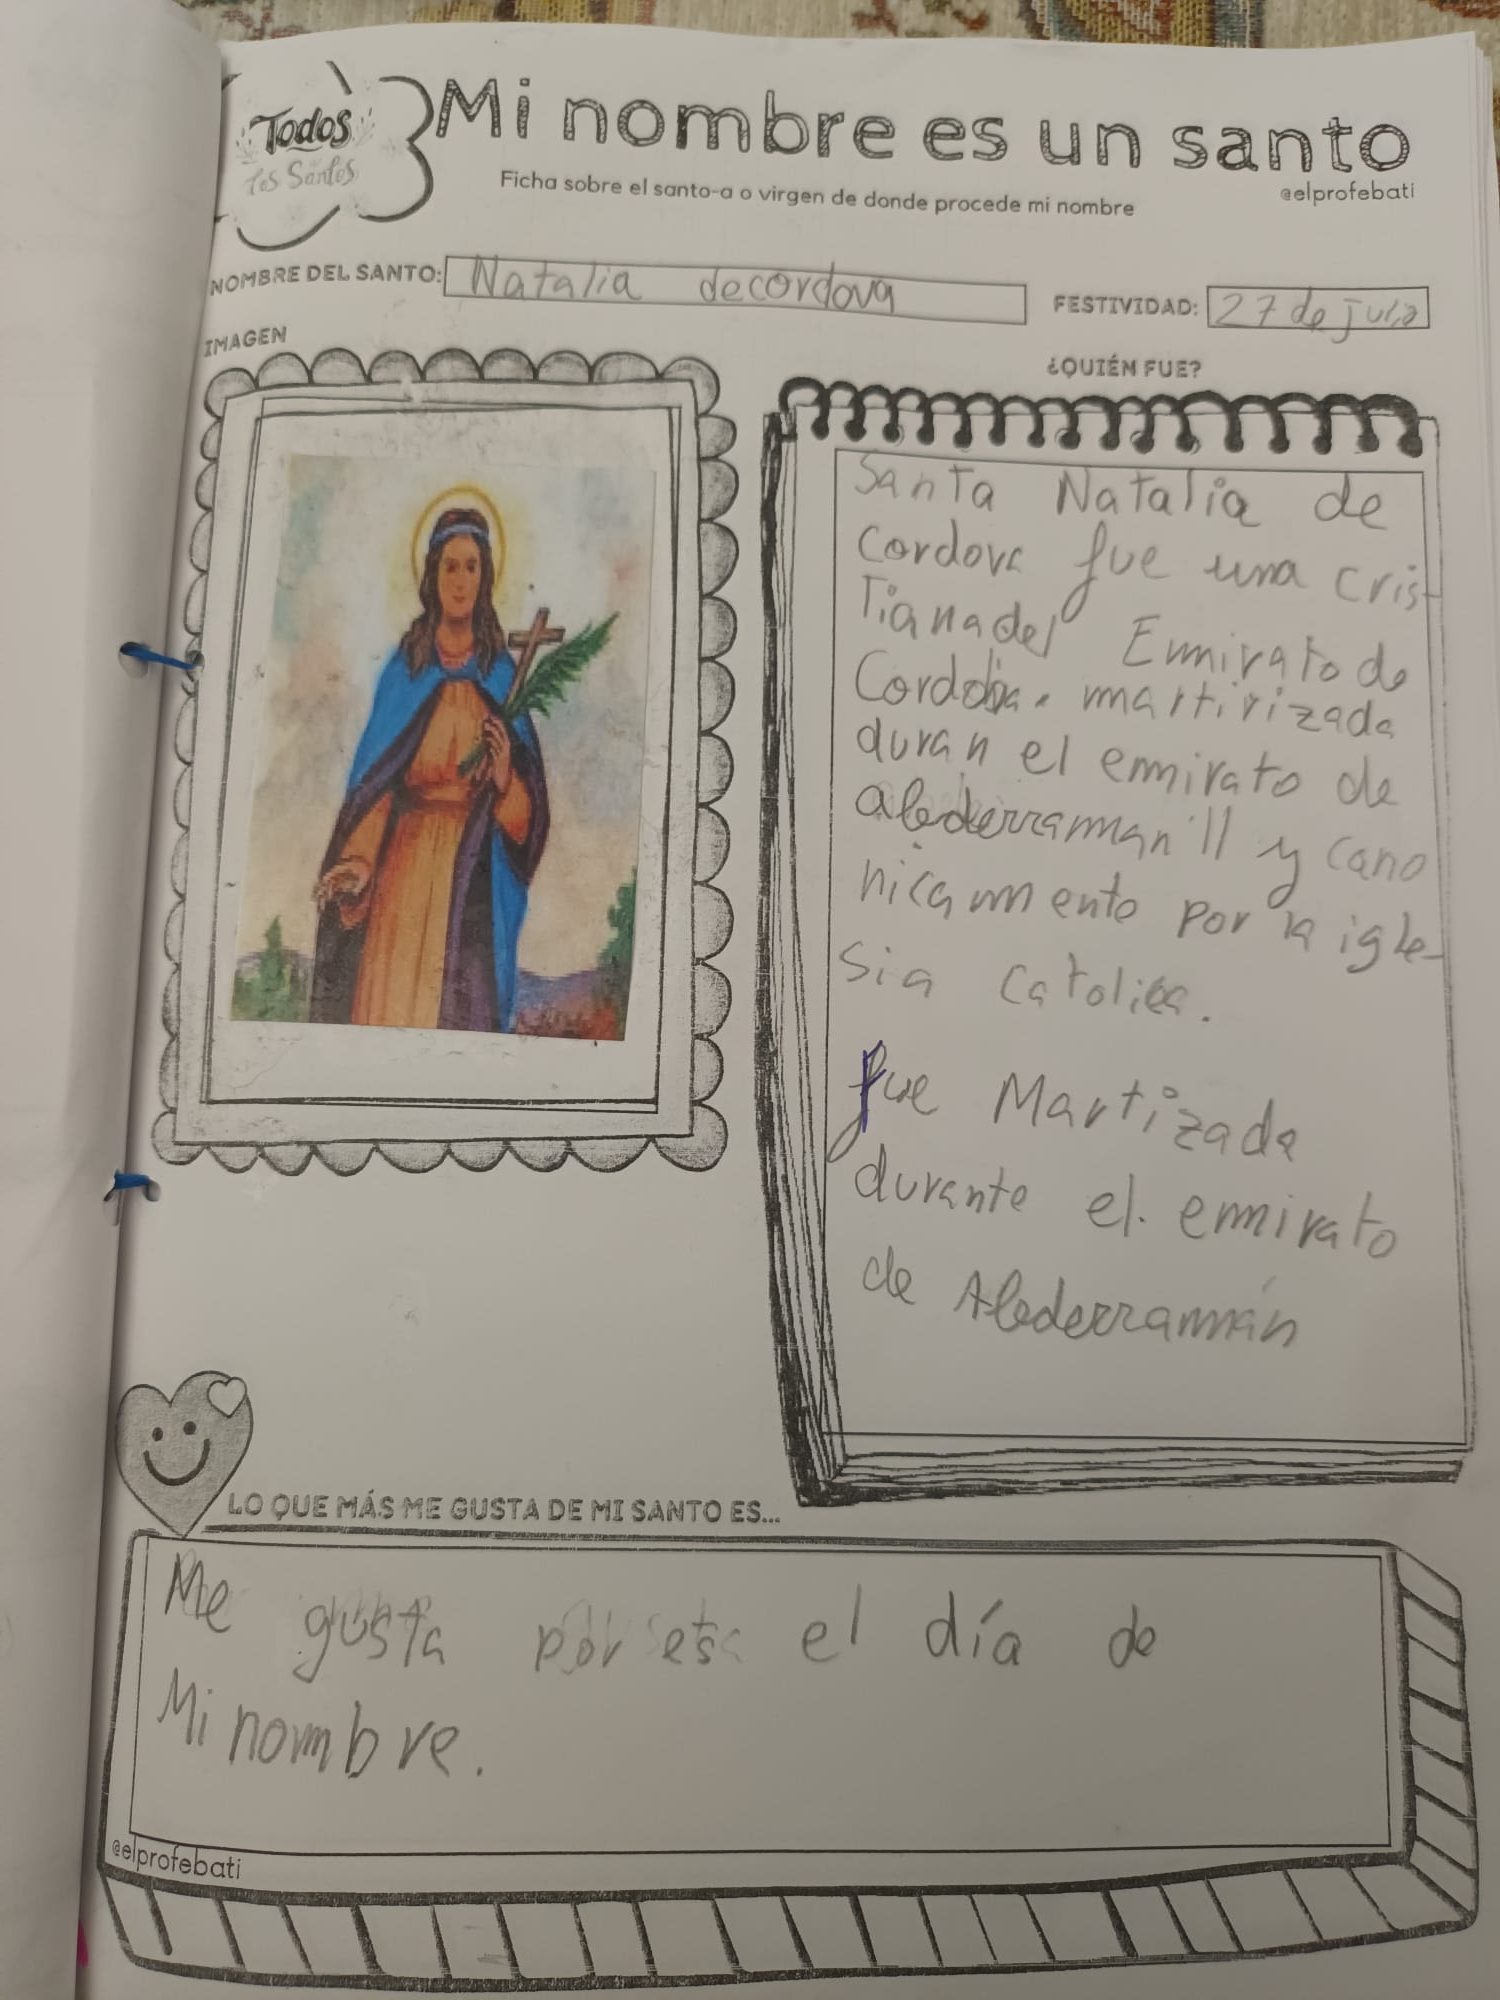 Todos
los Santos
Mi nombre es un santo
Ficha sobre el santo-a o virgen de donde procede mi nombre
@elprofebati
NOMBRE DEL SANTO: Natalia decordova
FESTIVIDAD: 27 de julio
IMAGEN
¿QUIÉN FUE?
Santa Natalia de
Cordova fue una cris-
Tiana del Emirato de
Cordoba. martirizada
duran el emirato de
abderraman II y cano
nicamente por la igle-
sia catolica.
fue Martizada
durante el. emirato
de Abderramán
LO QUE MÁS ME GUSTA DE MI SANTO ES...
Me gusta por es el día de
Mi nombre.
@elprofebati